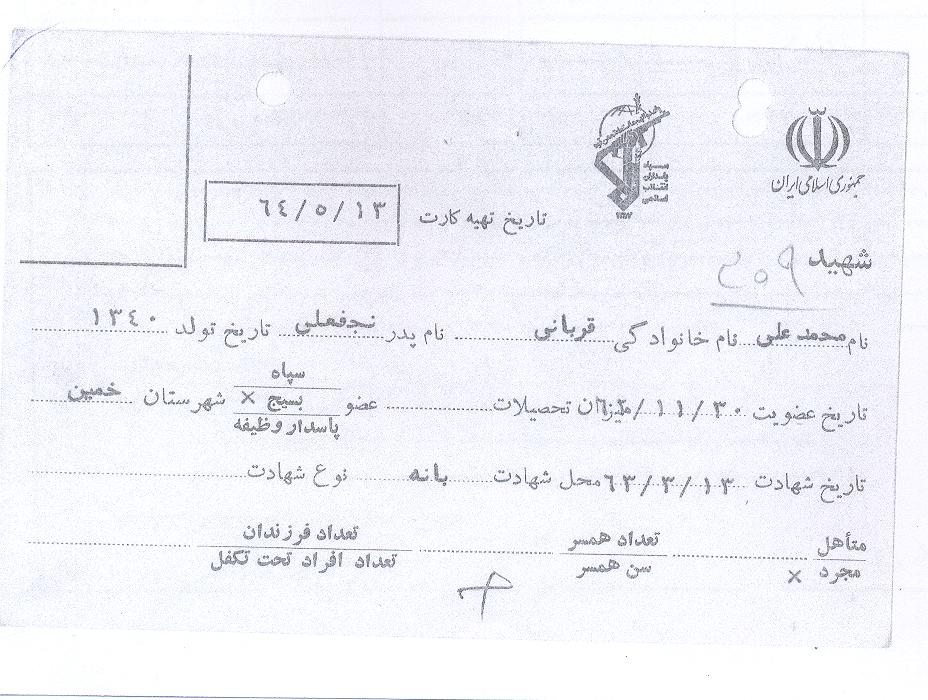 جمهوری اسلامی ایران
سپاه
پاسداران
انقلاب
اسلامی
۱۳۵۷
تاریخ تهیه کارت ۶۴/۵/۱۳
شهید
نام محمد علی نام خانوادگی قربانی نام پدر نجفعلی تاریخ تولد ۱۳۴۰
تاریخ عضویت /۱۱/۳۰ میزان تحصیلات عضو
سپاه
بسیج ×
پاسدار وظیفه
شهرستان خمین
تاریخ شهادت ۶۳/۳/۱۳ محل شهادت بانه نوع شهادت
متأهل
مجرد ×
تعداد همسر
سن همسر
تعداد فرزندان
تعداد افراد تحت تکفل